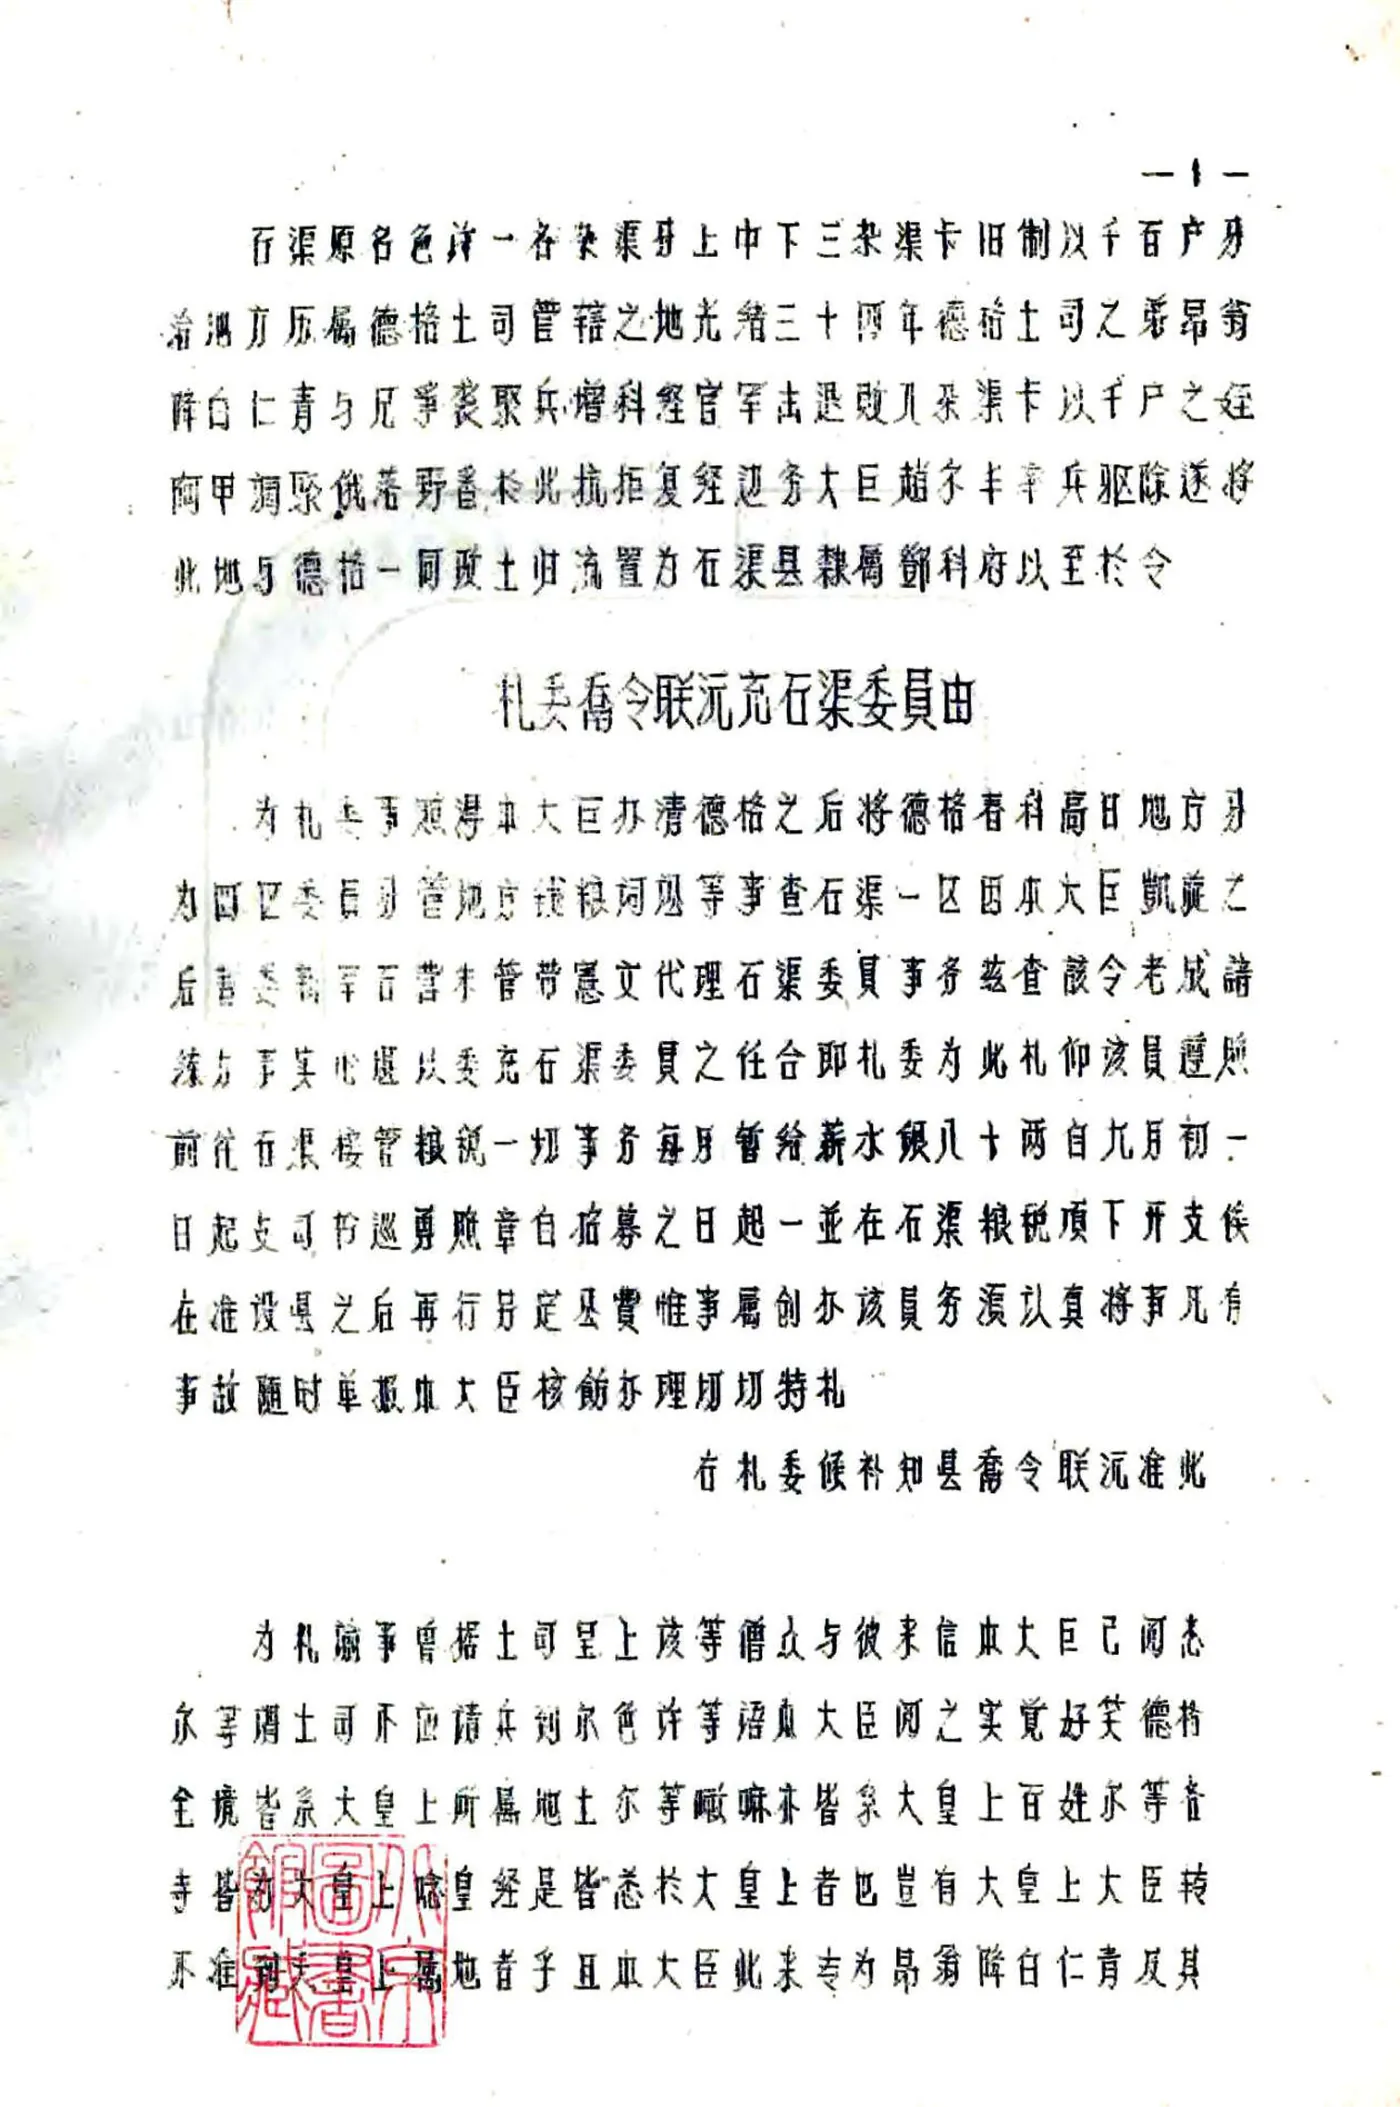 —1—
石渠原名色许一名杂渠分上中下三杂渠卡旧制以千百户分
治地方历属德格土司管辖之地光绪三十四年德格土司之弟昂翁
降白仁青与兄争袭聚兵增科经官军击退败入杂渠卡以千户之侄
阿甲调聚俄落野番於此抗拒复经边务大臣赵尔丰率兵驱除遂将
此地与德格一同改土归流置为石渠县隶属邓科府以至於今
札委喬令联沅充石渠委員由
为札委事照得本大臣办清德格之后将德格春科高日地方分
为四区委員分管地方钱粮词讼等事查石渠一区因本大臣凱旋之
后暂委新军右营朱管带憲文代理石渠委員事务兹查該令老成諳
练办事实心堪以委充石渠委員之任合即札委为此札仰该員遵照
前往石渠接管粮税一切事务每月暂给薪水银八十两自九月初一
日起支司书巡勇照章自招募之日起一並在石渠粮税項下开支俟
在准设县之后再行另定县費惟事属创办该員务须认真将事凡有
事故随时单报本大臣核飭办理切切特札
右札委候补知县喬令联沅准此
为札諭事曾据土司呈上该等僧众与彼来信本大臣已阅悉
尔等謂土司不应请兵到尔色许等語本大臣阅之实觉好笑德格
全境皆系大皇上所属地土尔等喇嘛亦皆系大皇上百姓尔等各
寺皆为大皇上唸皇经是皆忠於大皇上者也岂有大皇上大臣转
不准到大皇上属地者乎且本大臣此来专为昂翁降白仁青及其
北京圖書館藏